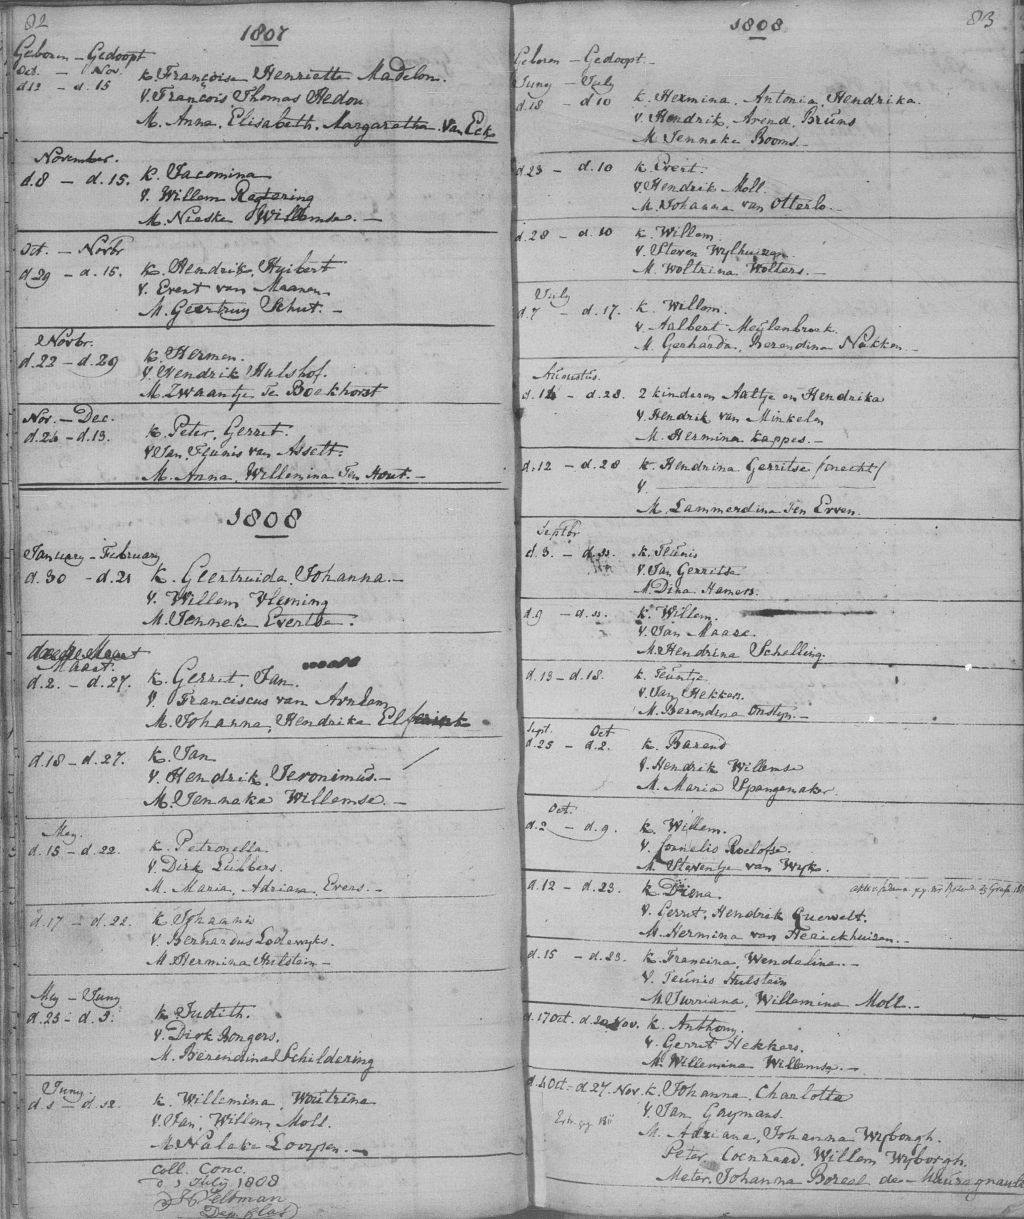 82
1807
Geboren - Gedoopt
Oct. - Nov.
d 12 - d. 15
K. Françoise Henrietta Madelon.
V. François Thomas Hedou
M. Anna, Elisabeth, Margaretha van Eck
November.
d. 8 - d. 15.
K. Jacomina
V. Willem
M. Nieske Willemse. -
Oct. - Novbr
d 29 - d. 15.
K. Hendrik, Huibert
V. Evert van Maanen
M. Geertruy Schut. -
Novbr.
d. 22 - d. 29
K. Hermen.
V. Hendrik Hulshof.
M. Zwaantje Te Bockhorst
Nov. - Dec.
d. 24 - d. 13.
K. Peter, Gerret.
V Jan, Teunis van Asselt.
M. Anna, Willemina Ten Hout. -
1808
January - February
d. 30 - d. 21
K. Geertruida, Johanna. -
V. Willem Vleming
M. Jenneke Evertse.
Maart.
d. 2. - d. 27.
K. Gerret, Jan.
V. Franciscus van Arnhem
M. Johanna, Hendrika
d. 18 - d. 27.
K. Jan
V. Hendrik, Jeronimus. -
M. Janneke Willemse. -
May.
d. 15 - d. 22.
K. Petronella.
V. Dirk Lubbers.
M. Maria, Adriana, Evers. -
d. 17 - d. 22.
K. Johanna
V. Bernardus Lodewyks.
M. Hermina Hulstein -
May - Juny
d. 25 - d. 3.
K. Judith.
V. Dirk Bongers.
M. Berendina Schildering
Juny
d. 5 - d. 12.
K. Willemina, Woutrina
V. Jan, Willem Moll.
M. Loorpen. -
Coll. Conc.
July 1808
Veltman
83
1808
Geboren - Gedoopt -
Juny - July
d. 18 - d 10
K. Hermina, Antonia, Hendrika.
V. Hendrik, Arend, Bruns
M. Jenneke Booms. -
d. 23 - d. 10
K. Evert.
V. Hendrik Moll.
M. Johanna van Otterlo. -
d. 28 - d. 10
K. Willem.
V. Steven Wylhuizen
M. Woltrina Wolters. -
July
d. 7 - d. 17.
K. Willem.
V. Aalbert Meulenbroek.
M. Gerharda, Berendina Nakken -
Augustus.
d. 14 - d. 28.
2 kinderen Aaltje en Hendrika
V. Hendrik van Minkelen
M. Hermina Kappes. -
d. 12 - d. 28
K. Hendrina Gerritse /onecht/
V.
M. Lammerdina Ten Erven.
Septbr
d. 3. - d. 11.
K. Teunis
V. Jan Gerritse
M. Dina Hamers.
d. 9 - d. 11.
K. Willem.
V. Jan Maase.
M. Hendrina Schelling.
d. 13 - d. 18.
K. Teuntje
V. Jan Hekkers.
M. Berendina Onstyn. -
Sept. Oct
d. 25 - d. 2.
K. Barend
V. Hendrik Willemse
M. Maria Spangenaker.
Oct.
d. 2 - d. 9.
K. Willem.
V. Cornelis Roelofse.
M. Steventje van Wyk.
d. 12 - d. 23.
K. Diena
V. Gerrit, Hendrik
M. Hermina van
d. 15 - d. 23.
K. Francina, Wendelina. -
V. Teunis Hulstein
M. Jurriana, Willemina Moll. -
d. 17 Oct. d. 20 Nov.
K. Anthony.
V. Gerrit Hekkers.
M. Willemina Willemse. -
d. 4 Oct. - d 27. Nov.
K. Johanna, Charlotta
V. Jan Gaymans.
M. Adriana, Johanna Wyborgh.
Peter, Coenraad, Willem Wyborgh.
Meter, Johanna Boreel de